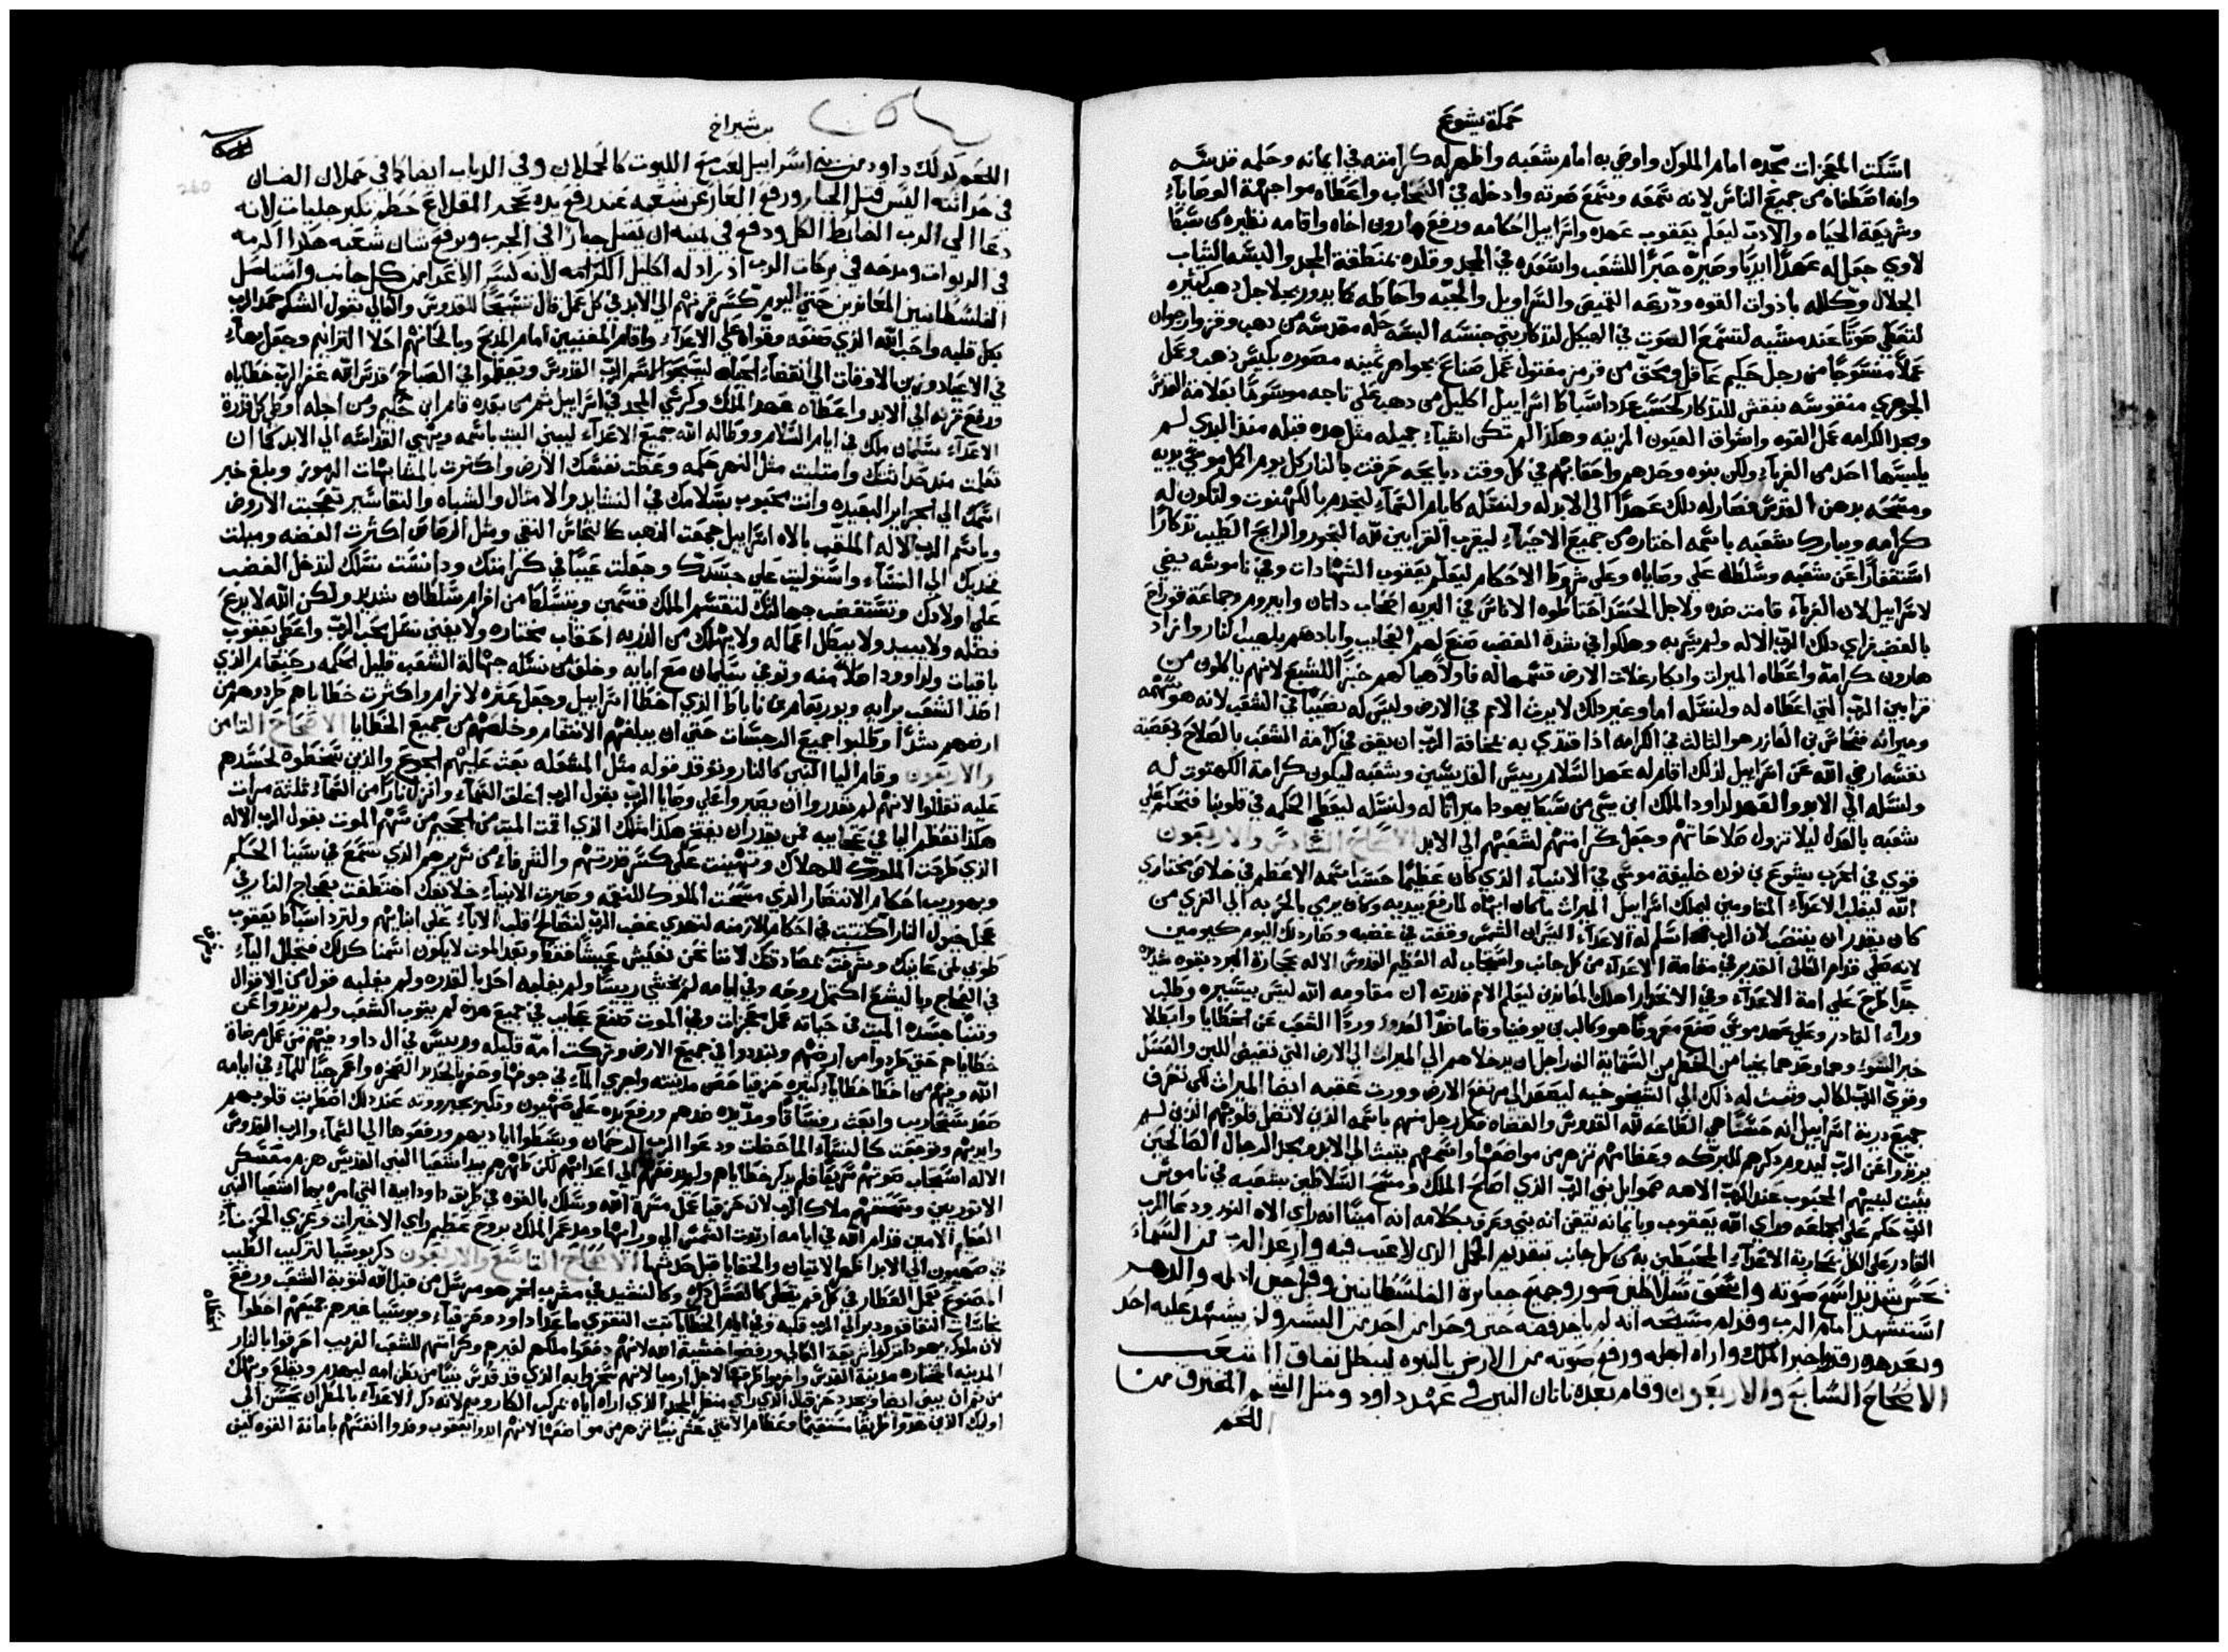 حكمة يشوع
اسكت المعجزات مجّده امام الملوك واوصي به امام شعبه واظهر له كرامته في ايمانه وحلمه قدسه
وانه اصطفاه من جميع الناس لانه سمعه وسمع صوته وادخله في السحاب واعطاه مواجهة الوصايا
وشريعة الحياه والادب ليعلّم يعقوب عهده واسراييل احكامه ورفع هارون اخاه واقامه نظيره من سبط
لاوي جعل له عهدًا ابديًا وصيّره حبرًا للشعب واسعده في المجد وقلده بمنطقة المجد والبسه الثياب
الجلال وكلله باذوات القوه ودرعه القميص والسراويل والجبّه واحاطه كما يدور بجلاجل ذهب كثيره
لتعطي صوتًا عند مشيه لتسمع الصوت في الهيكل لتذكار بني جنسه البسه حله مقدسه من ذهب وقرمز وارجوان
عملاً منسوجًا من رجل حكيم عاقل ومحق من قرمز مفتول عمل صناع بجواهر ثمينه مصوره بكيس ذهب وعمل
الجوهري منقوشه بنقش للتذكار كحسب عدد اسباط اسراييل اكليل من ذهب علي تاجه موسومًا بعلامة القدس
ومجد الكرامه عمل القوه واشواق العيون المزينه وهكذا لم تكن اشيآء جميله مثل هذه قبله منذ البدي لم
يلبسها احد من الغربآء ولكن بنوه وحدهم واحفادهم في كل وقت دبايحه حرقت بالنار كل يوم اكمل موسي يديه
ومسحه بدهن القدس فصار له ذلك عهدًا الي الابد له ولنسله كايام السمآء ليخدم بالكهنوت ولتكون له
كرامه ويبارك شعبه باسمه اختاره من جميع الاحيآء ليقرب القرابين لله البخور والرايح الطيب تذكارًا
استغفارًا عن شعبه وسلطه علي وصاياه وعلي شروط الاحكام ليعلّم يعقوب الشهادات وفي ناموسه يضي
لاسراييل لان الغربآء قامت ضده ولاجل الحسد احتاطوه الاناس في البريه اصحاب داتان وابيروم وجماعة قورح
بالغضب فراي ذلك الربّ الاله ولم يسر به وهلكوا في شدة الغضب صنع لهم العجايب وابادهم بلهيب النار وازاد
هارون كرامةً واعطاه الميرات وابكار غلات الارض قسمها له فاولاً هيا لهم خبزًا للشبع لانهم ياكلون من
قرابين الربّ التي اعطاه له ولنسله اما وغير ذلك لا يرث الامم في الارض وليس له نصيبًا في الشعب لانه هو سهمه
وميراثه فنحاس بن العازر هو الثالث في الكرامه اذا قتدي به بمخافة الربّ ان يقف في كرامة الشعب بالصلاح وبغصية
نفسه ارضي الله عن اسراييل لذلك اقام له عهد السلام رييس القديسين وشعبه ليكون كرامة الكهنوت له
ولنسله الي الابد والعهد لداود الملك ابن يسي من سبط يهودا ميراثًا له ولنسله ليعطي الحكمه في قلوبنا فتحكم علي
شعبه بالعدل ليلا تزول صلاحاتهم وجعل كرامتهم لشعبهم الي الابد الاصحاح السادس والاربعون
قوي في الحرب يشوع بن نون خليفة موسي في الانبياء الذي كان عظيمًا حسب اسمه الاعظم في خلاص مختاري
الله ليغلب الاعدآء المقاومين ليملك اسراييل الميراث ما كان ابهاه لما رفع بيديه وكان يرمي بالحربه الي القري من
كان يقدر ان ينتصب لان الرب اسلم له الاعدآء اليس ان الشمس وقفت في غضبه وصار ذلك اليوم كيومين
لانه صلي قدام العالي القدير في مقامة الاعدآء من كل جانب واستجاب له العظيم القدوس الاله بحجارة البرد بقوه شديده
جدًا طرح علي امة الاعدآء وفي الانحدار اهلك المعاندين ليعلم الامم قدرته ان مقاومه الله ليس يتيسره وطلب
ورآء القادر وعلي عهد موسي صنع معروفًا هو وكالب بن يوفنيا وقاما ضدّ العدو وردّا الشعب عن الخطايا وابطلا
خبر السوء وهما وحدهما نجيا من الخطر من الستماية الف راجل ان يدخلاهم الي الميراث الي الارض التي تفيض اللبن والعسل
وقوي الربّ لكالب وثبت له ذلك الي الشيخوخيه ليصعد الي مرتفع الارض وورث عقبه ايضا الميراث لكي تعرف
جميع درية اسراييل انه حسنًا هي الطاعه لله القدوس والقضاه فكل رجل منهم باسمه الذين لا تضل قلوبهم الذين لم
يرتدّوا عن الربّ ليدوم ذكرهم للبركه وعظامهم تزهر من مواضعها واسمهم يثبت الي الابد ومجد الرجال الصالحين
يثبت لبنيهم المحبوب عند الربّ الاهه صموايل نبي الربّ الذي اصلح الملك ومسح السلاطين بشعبه في ناموس
الربّ حكم علي الجماعه وراي الله يعقوب وبايمانه تيقن انه نبي وعرف بكلامه انه امينًا انه راي الاه النور ودعا الرب
القادر علي الكل بمحاربة الاعدآء المحيطين به من كل جانب بتقديم الحمل الذي لا عيب فيه وارعد الرب من السماء
بحس شديد اسمع صوته واسحق سلاطين صور وجميع جبابرة الفلسطانيين وقبل اجل اجله والدهر
استشهد امام الرب وقدام مسيحه انه لم ياخذ فضه حتي وحدا من احد من البشر ولم يشهد عليه احد
وبعد هذا رقد واخبر الملك واراه اجله ورفع صوته من الارض بالنبوه ليبطل نفاق الشعب
الاصحاح السابع والاربعون وقام بعده ناتان النبي في عهد داود ومثل الشحم المفترق من
اللحم
بن شيراخ
260
اللحم كذلك داود من بني اسراييل لعب مع الليوت كالحملان وفي الدياب ايضا كما في حملان الضان
في حداثته اليس قتل الجبار ورفع العار عن شعبه عند رفع يده بحجر المقلاع حطم تكبر جليات لانه
دعا الي الرب الضابط الكل ودفع في يمينه ان يقتل جبارًا في الحرب ويرفع شان شعبه هكذا اكرمه
في الربوات ومدحه في بركات الرب اذ زاد له اكليل الكرامه لانه كسر الاعدا من كل جانب واستاصل
الفلسطانيين المعاندين حتي اليوم كسر قرنهم الي الابد في كل عمل قال تسبيحًا للقدوس والعالي بقول الشكر حمد الرب
بكل قلبه واحب الله الذي صنعه وقواه علي الاعدآء واقام المغنيين امام المذبح وبالحانهم احلا الترانيم وجعل بهآء
في الاعياد وزين الاوقات الي انقضآء الحياه ليسبحوا اسم الربّ القدوس ويعظموا في الصباح قدس الله غفر الرب خطاياه
ورفع قرنه الي الابد واعطاه عهد الملك وكرسي المجد في اسراييل ثم من بعده قام ابن حكيم ومن اجله اوطي كل قدرة
الاعدآء سليمان ملك في ايام السلام ووطا له الله جميع الاعدآء ليبني البيت باسمه ويهيي القداسه الي الابد كما ان
تعلمت منذ حداثتك وامتليت مثل النهر حكمه وغطت نفسك الارض واكثرت بالمشابهات الرموز وبلغ خبر
اسمك الي الجزاير البعيده وانت محبوب بسلامك في النشايد والامثال والشباه والتفاسير تعجبت الاروض
وباسم الرب الاله الملقب بالاه اسراييل جمعت الذهب كالنحاس النقي ومثل الرصاص اكثرت الفضه وميلت
فخديك الي النسآء واستوليت علي جسدك وجعلت عيبًا في كرامتك ودانست نسلك لتدخل الغضب
علي اولادك وتستغضب جهالتك لتقسم الملك قسمين ويتسلط من افرام سلطان شديد ولكن الله لا يدع
فضله ولا يبيد ولا يبطل اعماله ولا يهلك من الذريه احفاب مختاره ولا يفني نسل محب الربّ واعطا يعقوب
باقيات ولداوود اصلاً منه وتوفي سليمان مع ابايه وخلق من نسله جهالة الشعب قليل الحكمه رحبعام الذي
اضل الشعب برايه ويوربعام بن ناباط الذي اخطا اسراييل وجعل عثره لافرام واكثرت خطاياهم طردوهم من
ارضهم بشدّا وطلبوا جميع الدجسات حتي ان يبلغهم الانتقام وخلصهم من جميع الخطايا الاصحاح الثامن
والاربعون وقام اليا النبي كالنار وتوقد قوله مثل المشعله بعث عليهم الجوع والذين سخطوه لحسدهم
عليه تقللوا لانهم لم يقدروا ان يصبروا علي وصايا الرب بقول الرب اغلق السمآء وانزل نارًا من السمآء ثلثة مرات
هكذا تعظم اليا في عجايبه فمن يقدر ان يفتخر هكذا مثلك الذي اقمت الميت من الجحيم من سهم الموت بقول الرب الاله
الذي طرحت الملوك للهلاك وتهينت علي كسر قدرتهم والشرفاء من سريرهم الذي سمع في سينا الحكم
وبحوريب احكام الانتقام الذي مسحت الملوك للنقمه وصيرت الانبياء خلايفك اختطفت بعجاج النار في
عجل خيول النار اكتتبت في احكام الازمنه لتهدي غضب الربّ لتصالح قلب الابآء علي ابنايهم ولترد اسباط يعقوب
طوبي لمن عاينك وتشرفت بمصادقتك لاننا نحن نعيش عيشًا فقط وبعد الموت لا يكون اسمنا كذلك فتجلل اليا
في العجاج وباليشع اكتمل روحه وفي ايامه لم يخشي رييسًا ولم يغلبه احد بالقدره ولم يغلبه قول من الاقوال
وتنبا جسده الميت في حياته عمل معجزات وفي الموت صنع عجايب في جميع هذه لم يتوب الشعب ولم يرتدوا عن
خطاياهم حتي طردوا من ارضهم وتبددوا في جميع الارض وتركت امة قليله ورييس في ال داود فمنهم من عمل مرضاة
الله ومنهم من اخطا خطايا كثيره حزقيا حصن مدينته واجري المآء في جوفها وحفر بالحديد الصخره واعمر جبًا للمآء في ايامه
صعد سنحاريب وابعث ربساقا ومدّ يده ضدهم ورفع يده علي صهيون وتكبر بجبروته عند ذلك اضطربت قلوبهم
وايديهم وتوجعت كالنسآء الماخضات ودعوا الرب الرحمان وبسطوا اياديهم ورفعوها الي السمآء والرب القدوس
الاله استجاب صوتهم سريعًا فلم يذكر خطاياهم ولم يدفعهم الي اعدايهم لكن طهرهم بيد اشعيا النبي القديس هزم معسكر
الاتوريين وسحقهم ملاك الرب لان حزقيا عمل مسرة الله وسلك بالقوه في طريقة داود ابيه التي امره بها اشعيا النبي
العظيم الامين قدام الله في ايامه ارتدت الشمس الي ورايها ومد عمر الملك بروح عظيم راي الاخيرات وعزي الحزنآء
في صهيون الي الابد اظهر الاتيان والخفايا قبل حدثها الاصحاح التاسع والاربعون ذكر يوشيا لتركيب الطيب
المصنوع بعمل العطار في كل فم يعطي كالعسل ذكره وكالنشيد في مشرب الخمر هو مرسل من قبل الله لتوبة الشعب ورفع
نجاسات النفاق ودبر الي الرب قلبه وفي ايام الخطايا ثبت التقوي ما عدا داود وحزقيآء ويوشيا غيرهم جميعهم اخطوا
لان ملوك يهودا تركوا شريعة العالي ورفضوا خشية الله لانهم دفعوا ملكهم لغيرهم وكرامتهم للشعب الغريب احرقوا بالنار
المدينه المختاره مدينة القدس واخربوا طرقها لاجل ارميا لانهم سخروا به الذي قد قدس نبيًا من بطن امه ليهدم ويقلع ويهلك
من ثم ان يبني ايضا ويجدد حزقيال الذي راي منظر المجد الذي اراه اياه بمركب الكاروبيم لانه ذكر الاعدآء بالمطر ان يحسن الي
اوليك الذين هدّوا طريقًا مستقيمًا وعظام الاثني عشر نبيًا تزهر من مواضعها لانهم ايدوا يعقوب وفدوا انفسهم بامانة القوه كيف